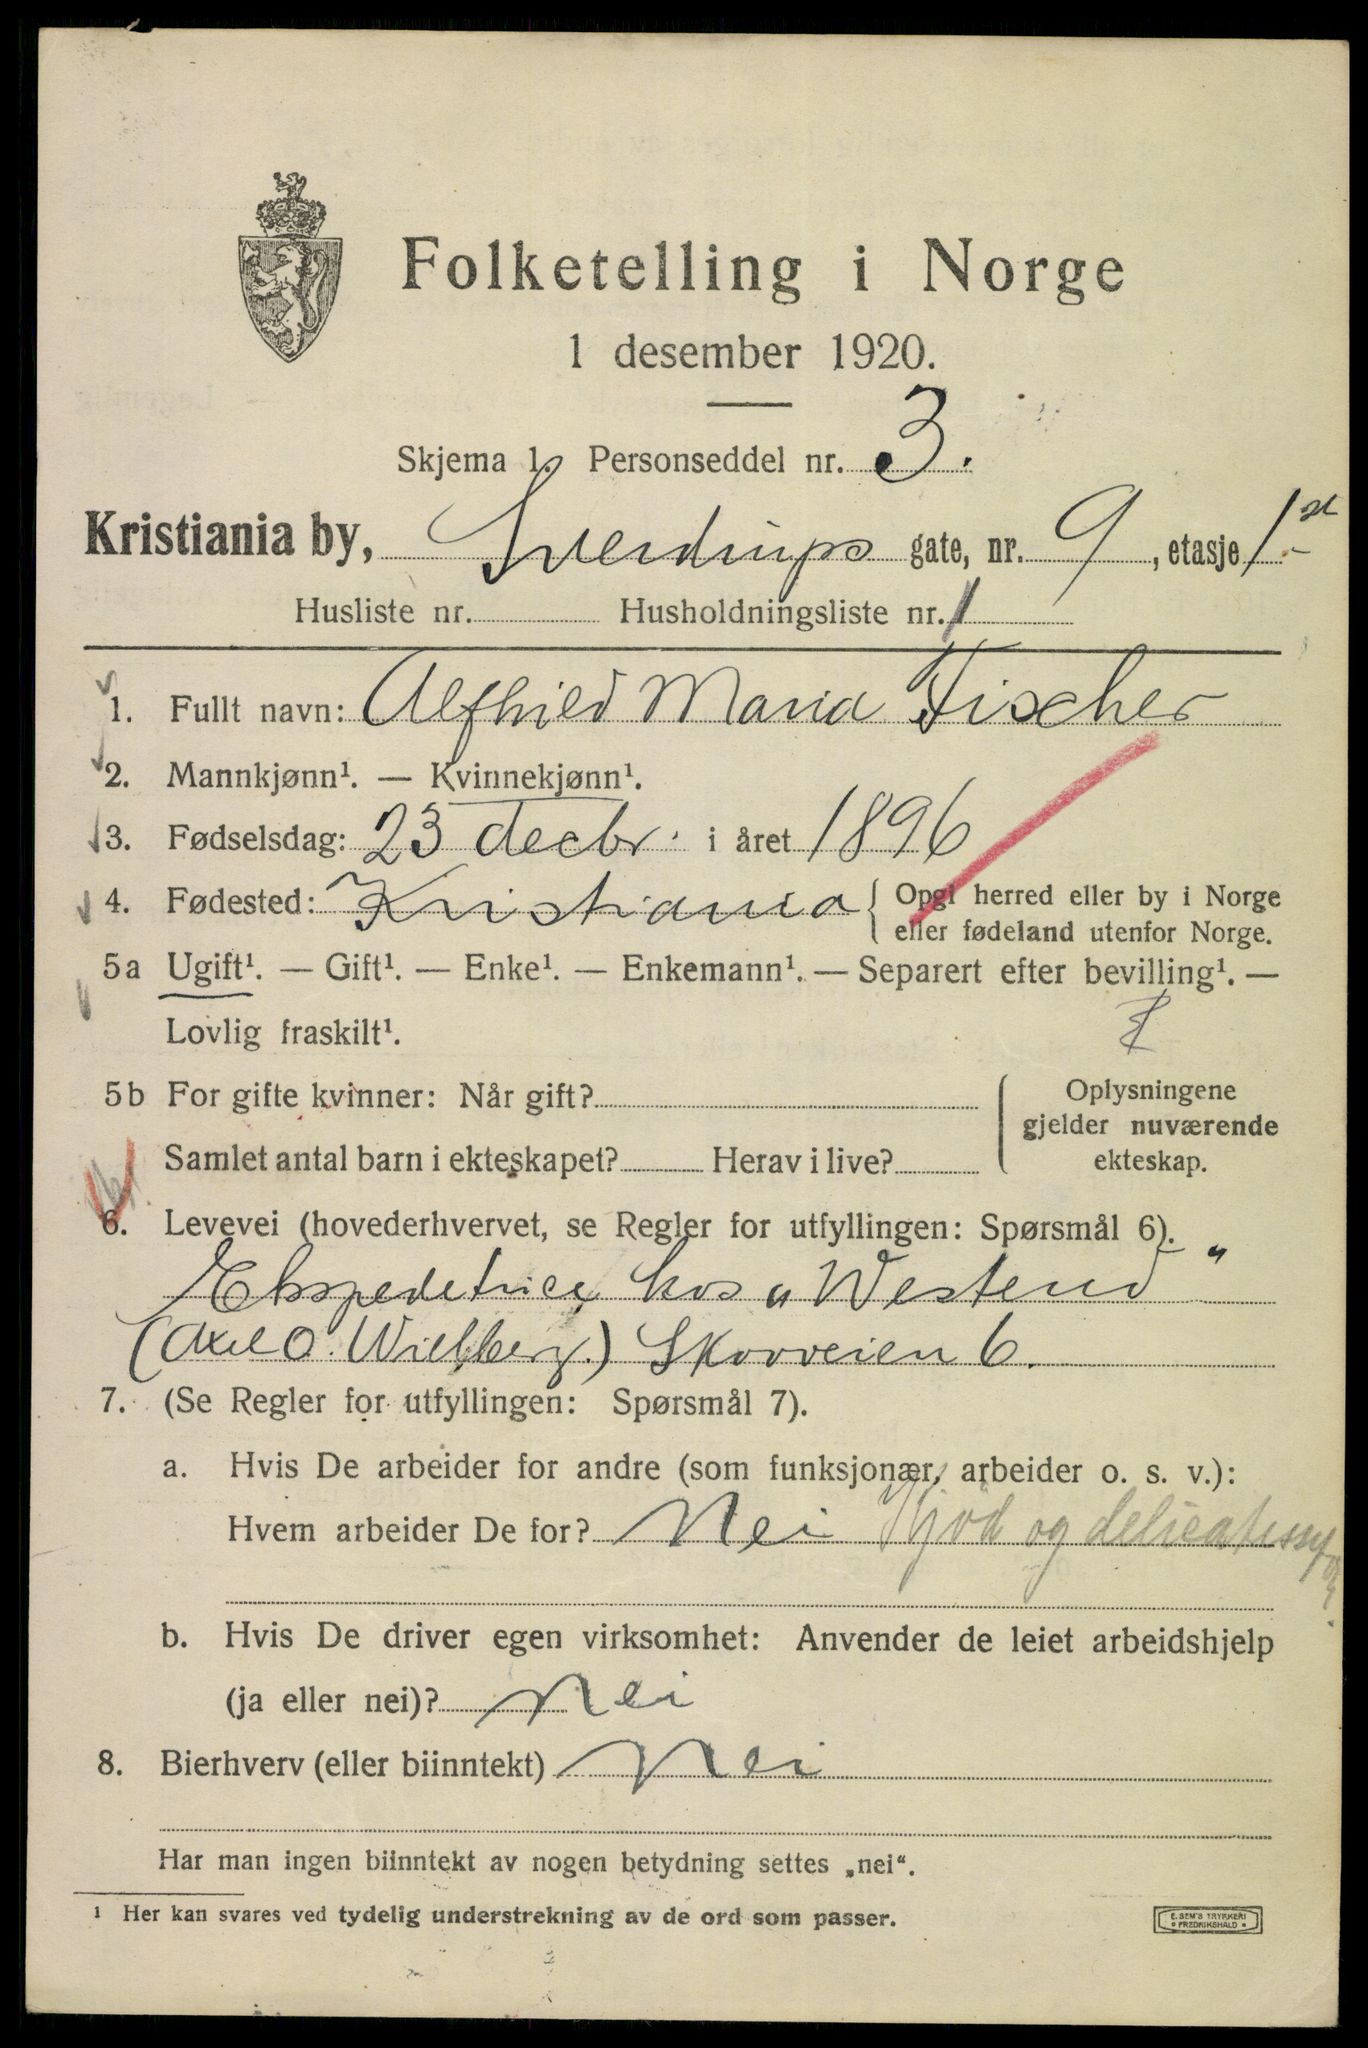 Folketelling i Norge
1 desember 1920.
Skjema 1. Personseddel nr. 3.
Kristiania by, Sverdrups gate, nr. 9, etasje 1st
Husliste nr. Husholdningsliste nr. 1
1. Fullt navn: Alfhild Maria Fischer
2. Mannkjønn¹. — Kvinnekjønn¹.
3. Fødselsdag: 23 decbr. i året 1896
4. Fødested: Kristiania { Opgi herred eller by i Norge
eller fødeland utenfor Norge.
5a Ugift¹. — Gift¹. — Enke¹. — Enkemann¹. — Separert efter bevilling¹. —
Lovlig fraskilt¹.
5b For gifte kvinner: Når gift? Oplysningene
gjelder nuværende
Samlet antal barn i ekteskapet? Herav i live? ekteskap.
6. Levevei (hovederhvervet, se Regler for utfyllingen: Spørsmål 6).
Ekspeditrice hos „Westend"
(Axel O. Wielberg.) Skovveien 6.
7. (Se Regler for utfyllingen: Spørsmål 7).
a. Hvis De arbeider for andre (som funksjonær, arbeider o. s. v.):
Hvem arbeider De for? Nei Kjød og
b. Hvis De driver egen virksomhet: Anvender de leiet arbeidshjelp
(ja eller nei)? Nei
8. Bierhverv (eller biinntekt) Nei
Har man ingen biinntekt av nogen betydning settes „nei“.
¹ Her kan svares ved tydelig understrekning av de ord som passer.
E. SEM'S TRYKKERI
FREDRIKSHALD